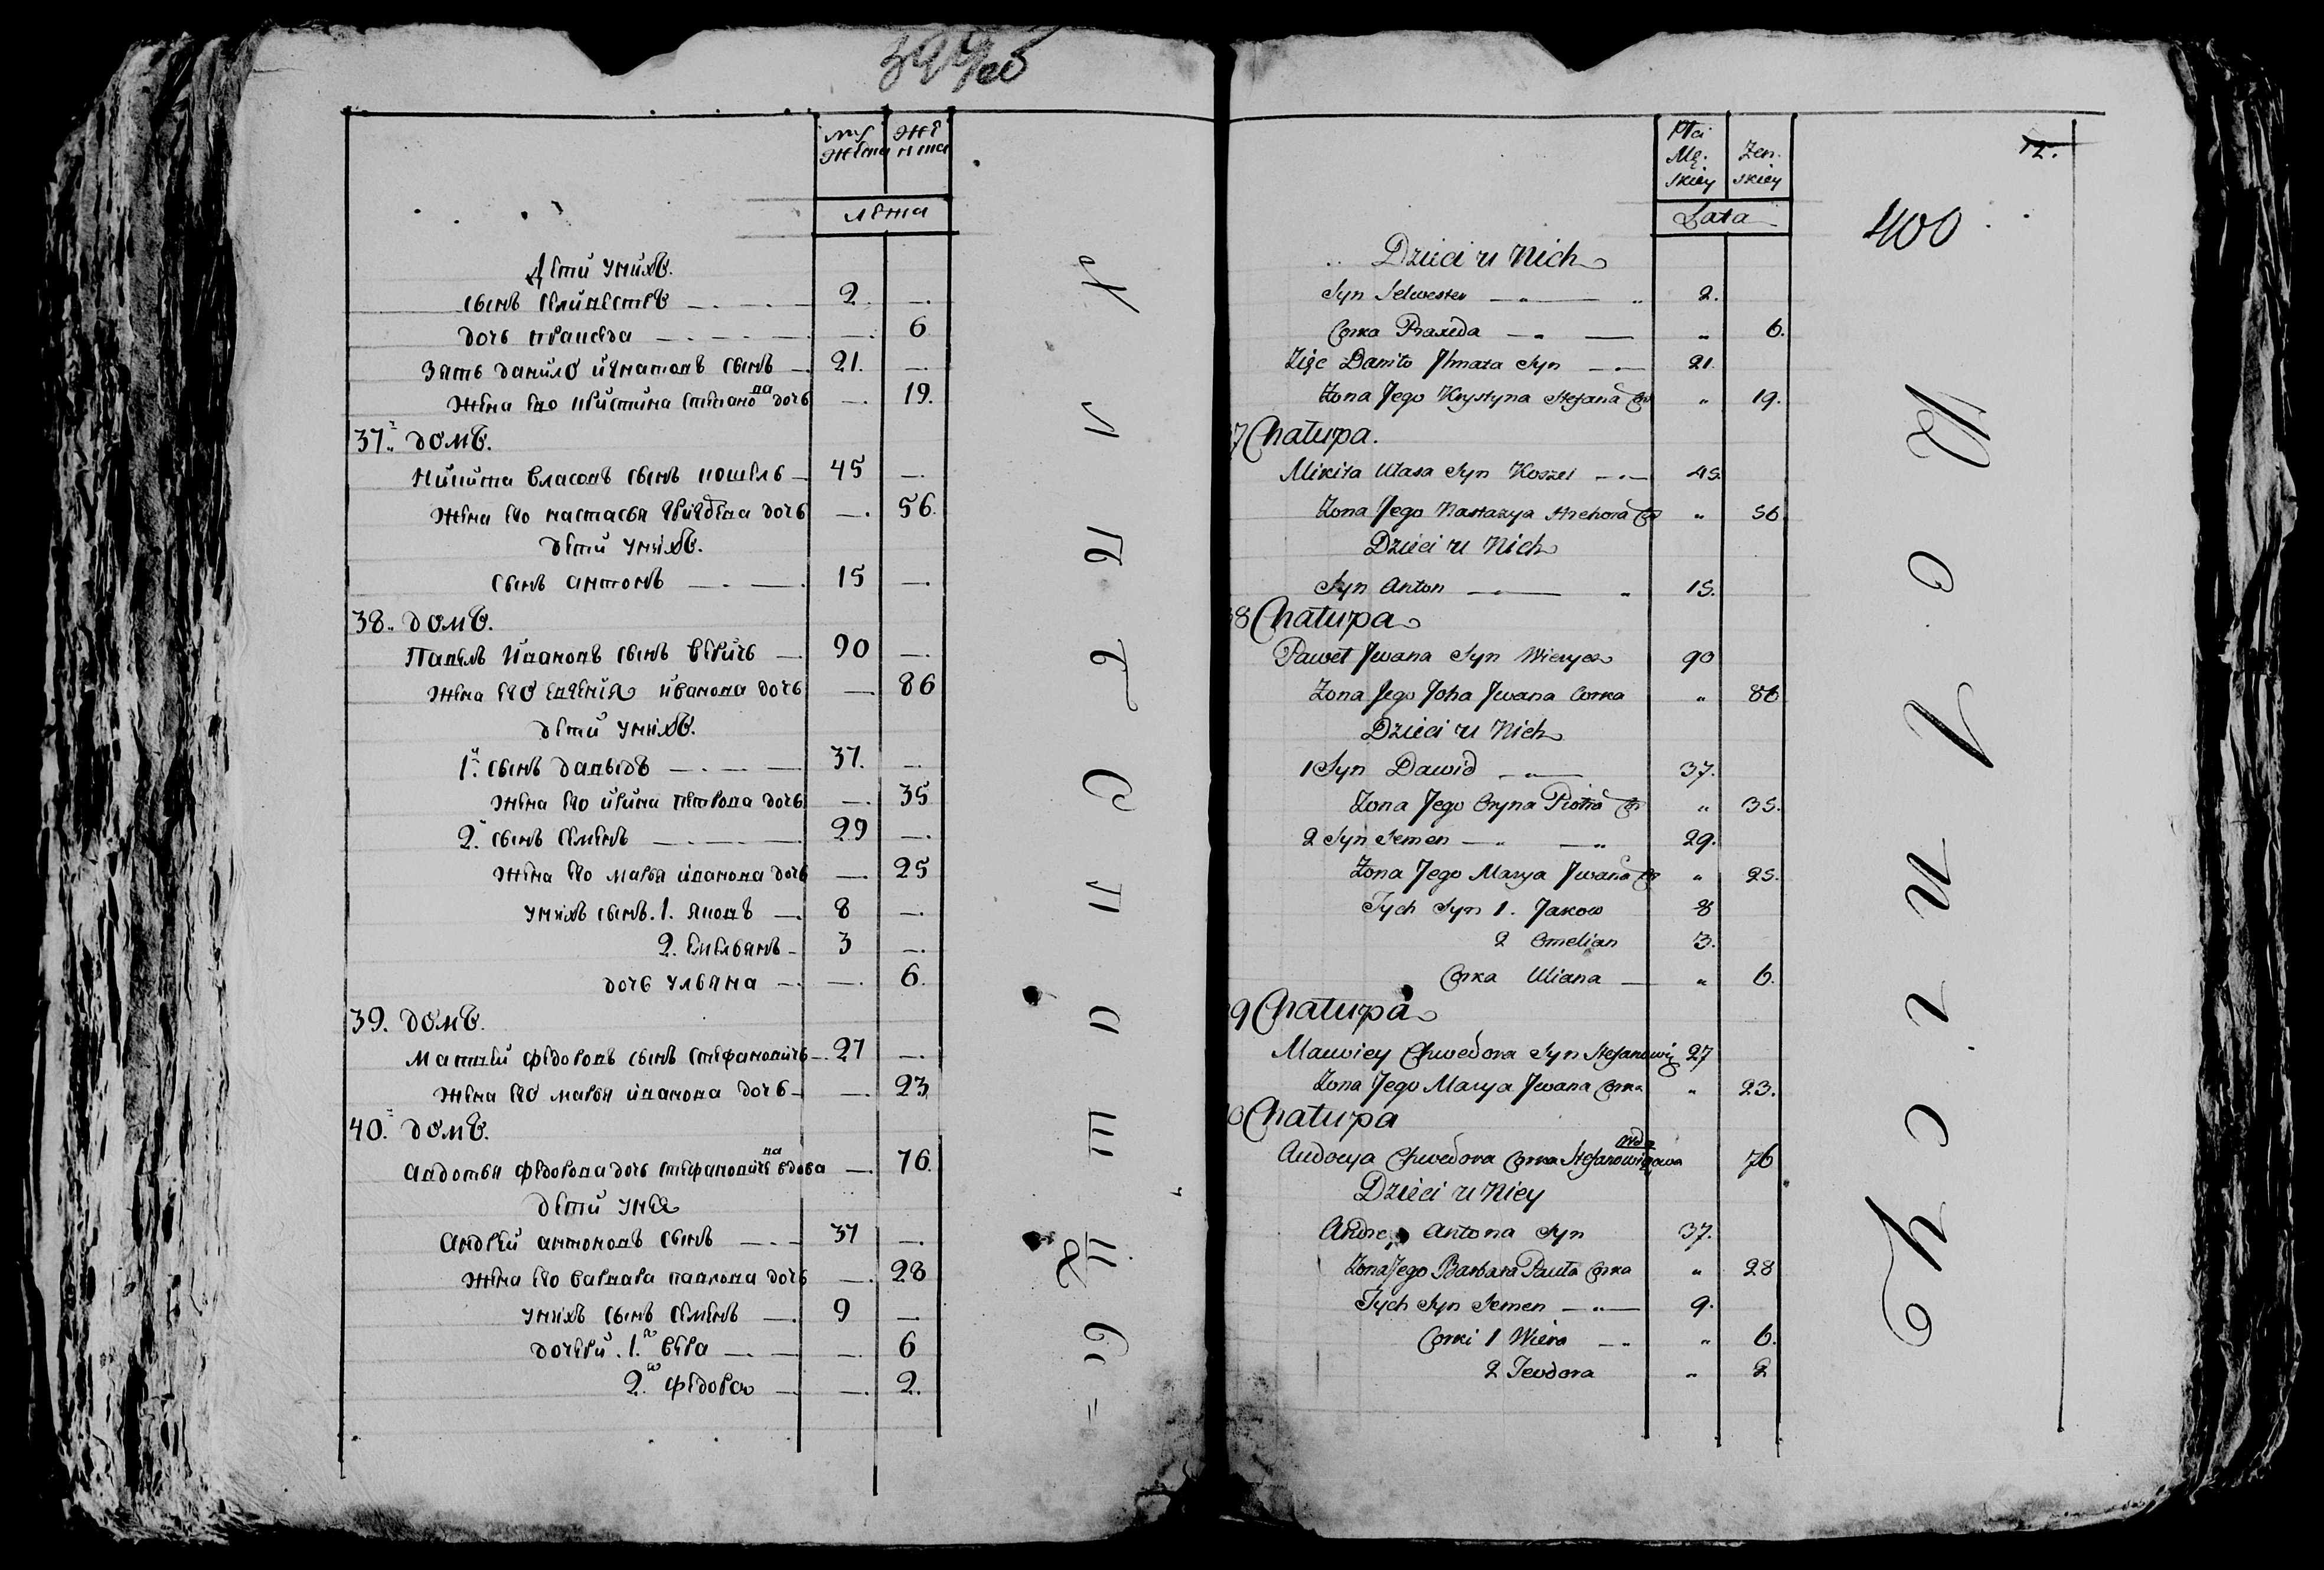 399об
муже́ска
же́нска
лета
Дети у них.
сынъ селивестръ 2. —.
дочь пракседа —. 6
Зять данило игнатовъ сынъ 21. —.
жена его христина степановна дочь —. 19.
37. домъ.
Никита власовъ сынъ кошель 45 —.
жена его настасья григорьева дочь —. 56.
дети у нихъ.
сынъ антонъ 15 —.
38. домъ.
Павелъ Ивановъ сынъ веричь 90 —.
жена его евгения иванова дочь — 86
дети у нихъ.
1й сынъ давыдъ 37. —.
жена его ирина петрова дочь —. 35
2й сынъ семенъ 29 —.
жена его марья иванова дочь —. 25
у нихъ сынъ. 1. яковъ 8 —.
2. емельянъ 3 —.
дочь ульяна —. 6.
39. домъ.
Матвей федоровъ сынъ стефановичь 27 —.
жена его марья иванова дочь —. 23
40. домъ.
Авдотья федорова дочь стефановичева вдова —. 76.
дети у нея
Андрей антоновъ сынъ 37 —.
жена его варвара павлова дочь —. 28
у нихъ сынъ семенъ 9 —.
дочери. 1. вера —. 6
2. федора —. 2.
Płci
Mę.
skiey
Zen.
skiey
Lata
12.
400
Dzieci u Nich
Syn Selwester 2.
Corka Praxeda " 6.
Zięc Daniło Jhnata Syn 21.
Zona Jego Krystyna Stefana Cor " 19.
37 Chałupa.
Mikita Ułasa Syn Koszel 45.
Zona Jego Nastazya Hrehora Cor " 56
Dzieci u Nich
Syn Anton 15.
38 Chałupa
Paweł Jwana Syn Wierycz 90
Zona Jego Joha Jwana Corka " 86
Dzieci u Nich
1 Syn Dawid 37.
Zona Jego Oryna Piotra Cor " 35.
2 Syn Semen 29.
Zona Jego Marya Jwana Cor " 25.
Tych Syn 1. Jakow 8
2 Omelian 3.
Corka Uliana " 6.
39 Chałupa
Mawiey Chwedora Syn Stefanowicz 27
Zona Jego Marya Jwana Corka " 23.
40 Chałupa
Audocya Chwedora Corka Stefanowiczowa wda 76
Dzieci u Niey
Andrey Antona Syn 37.
Zona Jego Barbara Pauła Corka " 28
Tych Syn Semen 9.
Corki 1 Wiera " 6.
2 Teodora " 2